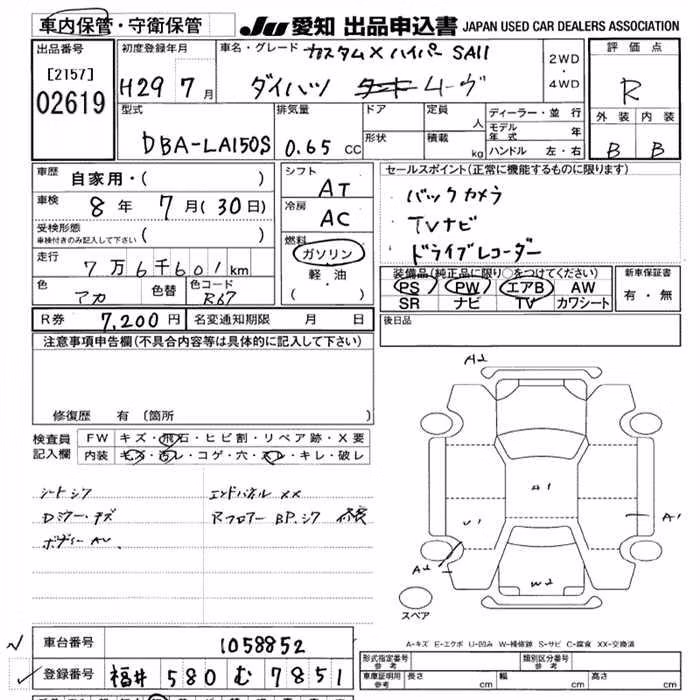 車内保管・守衛保管 JU 愛知 出品申込書 JAPAN USED CAR DEALERS ASSOCIATION
出品番号 初度登録年月 車名・グレード カスタム X ハイパー SAII 2WD・4WD 評価点
[2157] H29 7月 ダイハツ ムーヴ R
02619
型式 排気量 ドア 定員 人 ディーラー・並行 外装 内装
DBA-LA150S 0.65 CC 形状 積載 kg モデル年式 年 B B
ハンドル 左・右
車歴 自家用・( ) シフト AT セールスポイント(正常に機能するものに限ります)
車検 8年 7月(30日) 冷房 AC バックカメラ
受検形態 車検付きのみ記入して下さい ( ) 燃料 TVナビ
走行 7万6千601km ガソリン ドライブレコーダー
色 アカ 色替 色コード R67 軽油 ・( )
装備品(純正品に限り○をつけてください) 新車保証書
PS PW エアB AW 有・無
SR ナビ TV カワシート
R券 7,200円 名変通知期限 月 日 後日品
注意事項申告欄(不具合内容等は具体的に記入して下さい)
修復歴 有〔箇所 〕
検査員記入欄 FW キズ・飛石・ヒビ割・リペア跡・X要
内装 キズ・汚レ・コゲ・穴・スレ・キレ・破レ
シートシワ エンドパネル XX
Dミラーキズ Rフロアー BP.シワ
ボディー AU
A2
A1
U1 A1
A2
W2
スペア
A-キズ E-エクボ U-凹み W-補修跡 S-サビ C-腐食 XX-交換済
車台番号 1058852
登録番号 福井 580 む 7851
形式指定番号 参考 類別区分番号 参考
車庫証明用 参考 長さ cm 幅 cm 高さ cm